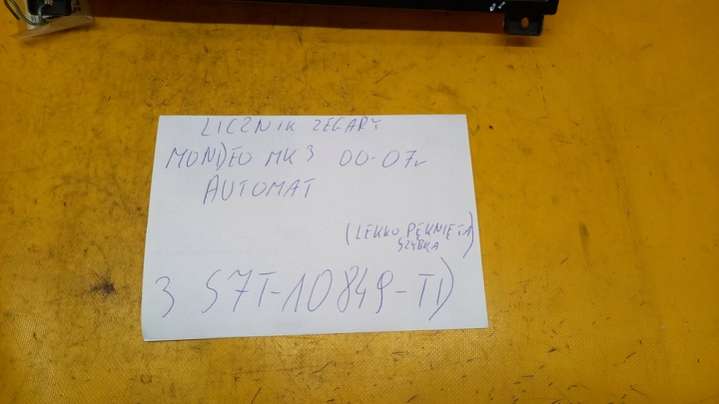 LICZNIK ZEGARY
MONDEO MK3 00-07r
AUTOMAT
(LEKKO PĘKNIĘTA
SZYBKA)
3S7T-10849-TD